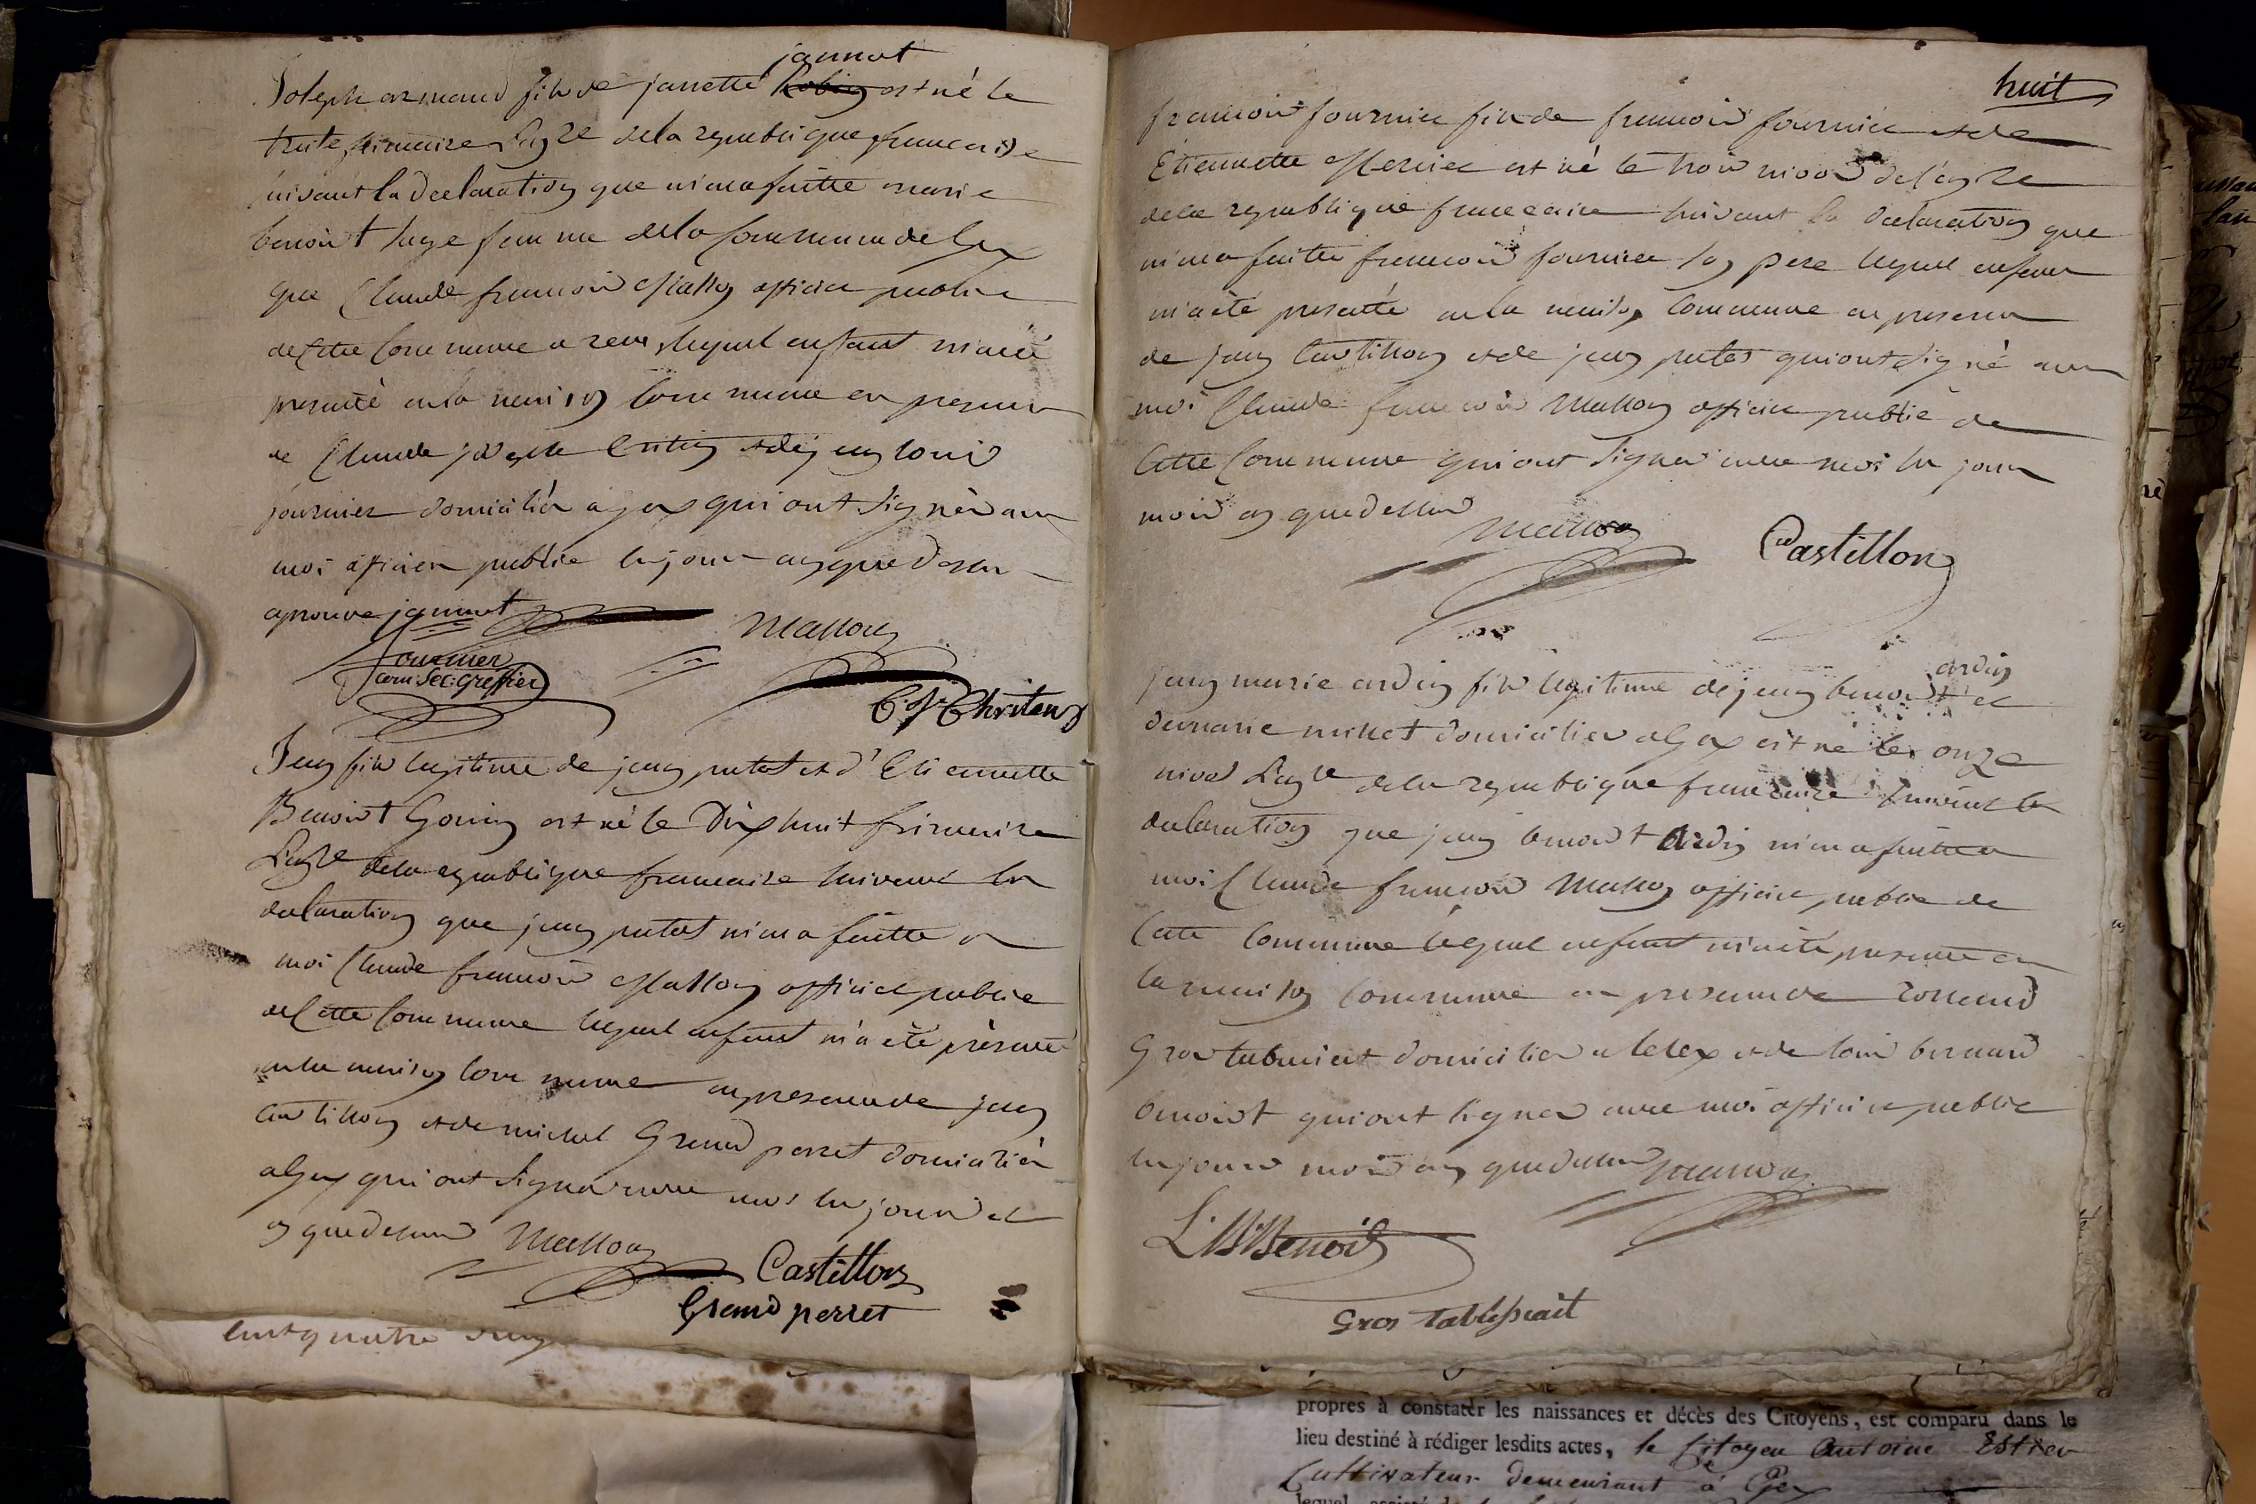 jannot
Joseph armand fils de janette Robin est né le
trente frimaire l'an 2e de la republique francaise
suivant la declaration que m'en a faitte marie
benoit sage femme de la Commune de Gex
que Claude francois Masson officier public
de Cette Commune a recu, lequel enfant m'a été
presenté en la maison Commune en presence
de Claude joseph et de jean louis
fournier domiciliés a gex qui ont signés avec
moi officier public les jour an que dessus
aprouve jannot
Masson
fournier
com: Sec: Greffier
C J Christin
Jean fils legitime de jean putod et d'Etiennette
Benoit Gonin est né le Dix huit frimaire
L'an 2e de la republique francaise suivant la
declaration que jean putod m'en a faitte a
moi Claude francois Masson officier public
de Cette Commune lequel enfant m'a été présenté
en la maison Commune en presence de jean
Castillon et de michel Grand perret domiciliés
a Gex qui ont signés avec moi les jours et
an que dessus
Masson
Castillon
Grand perret
huit
francois fournier fils de francois fournier et de
Etiennette Mercier est né le trois nivos de l'an 2e
de la republique francaise suivant la declaration que
m'en a faitte francois fournier son pere lequel enfant
m'a été presenté en la maison Commune en presence
de jean Castillon et de jean putod qui ont signé avec
moi Claude francois Masson officier public de
Cette Commune qui ont signés avec moi les jour
mois an que dessus
Masson
Castillon
ardin
jean marie ardin fils legitime de jean benoit et
de marie millet domiciliés a Gex est né le onze
nivos L'an 2e de la republique francaise suivant la
declaration que jean benoit Ardin m'en a faitte a
moi Claude francois Masson officier public de
Cette Commune lequel enfant m'a été presenté en
la maison Commune en presence de romand
Gros tabussiat domicilié a lelex et de louis bernard
benoit qui ont signés avec moi officier public
les jours mois an que dessus
Masson
L: B: Benoit
Gros tabussiait
propres à constater les naissances et décès des Citoyens, est comparu dans le
lieu destiné à rédiger lesdits actes, le Citoyen Antoine Estier
Cultivateur demeurant à Gex